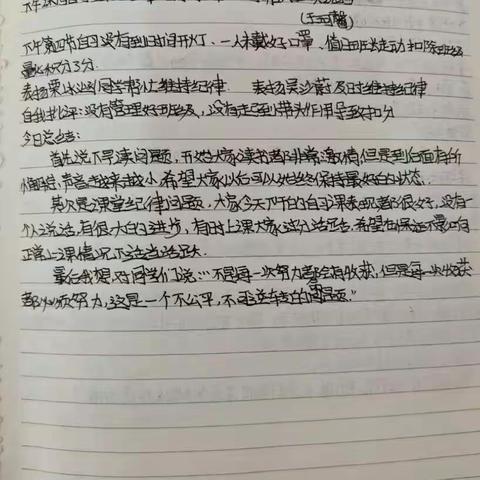 (于可馨)
下午第四节自习没有到时间开灯、一人未戴好口罩、值日班长走动扣除班级
量化积分3分.
表扬栗冰冰同学帮忙维持纪律 表扬吴沙蔚及时维持纪律
自我批评:没有管理好班级,没有起到带头作用导致扣分
今日总结:
首先说下早读问题,开始大家读书都非常激情但是到后面有所
懈怠,声音越来越小,希望大家以后可以始终保持最好的状态.
其次是课堂纪律问题,大家今天下午的自习课表现都很好,没有一
个人说话,有很大的进步,有时上课大家过分活跃,希望在保证不影响
正常上课情况下适当活跃
最后我想对同学们说:“不是每一次努力都会有收获,但是每一次收获
都必须努力,这是一个不公平,不可逆转的问题.”